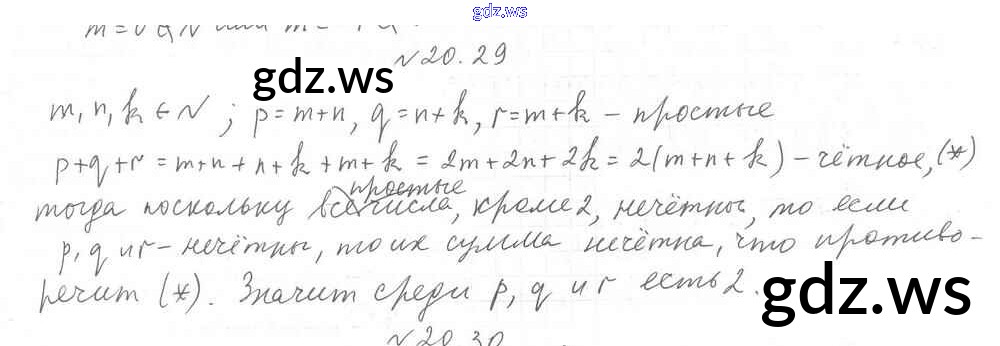 gdz.ws
N 20.29
gdz.ws
m, n, k ∈ N ; p = m+n, q = n+k, r = m+k – простые
p+q+r = m+n + n+k + m+k = 2m+2n+2k = 2(m+n+k) – чётное, (*)
простые
тогда поскольку все числа, кроме 2, нечётны, то если
p, q и r – нечётны, то их сумма нечётна, что противо-
речит (*). Значит среди p, q и r есть 2.
gdz.ws
N 20.30